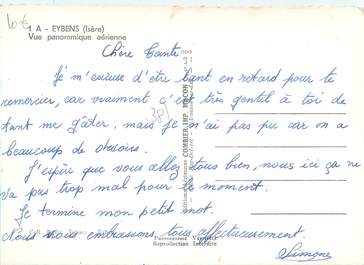 10€
1 A - EYBENS (Isère)
Vue panoramique aérienne
Chère Tante
Je m'excuse d'être tant en retard pour te
remercier, car vraiment c'est très gentil à toi de
tant me gâter, mais je n'ai pas pu car on a
beaucoup de devoirs.
J'espère que vous allez tous bien, nous ici ça ne
va pas trop mal pour le moment.
Je termine mon petit mot.
Nous vous embrassons tous affectueusement
Simone
38
COMBIER IMP. MACON
Reproduction Interdite